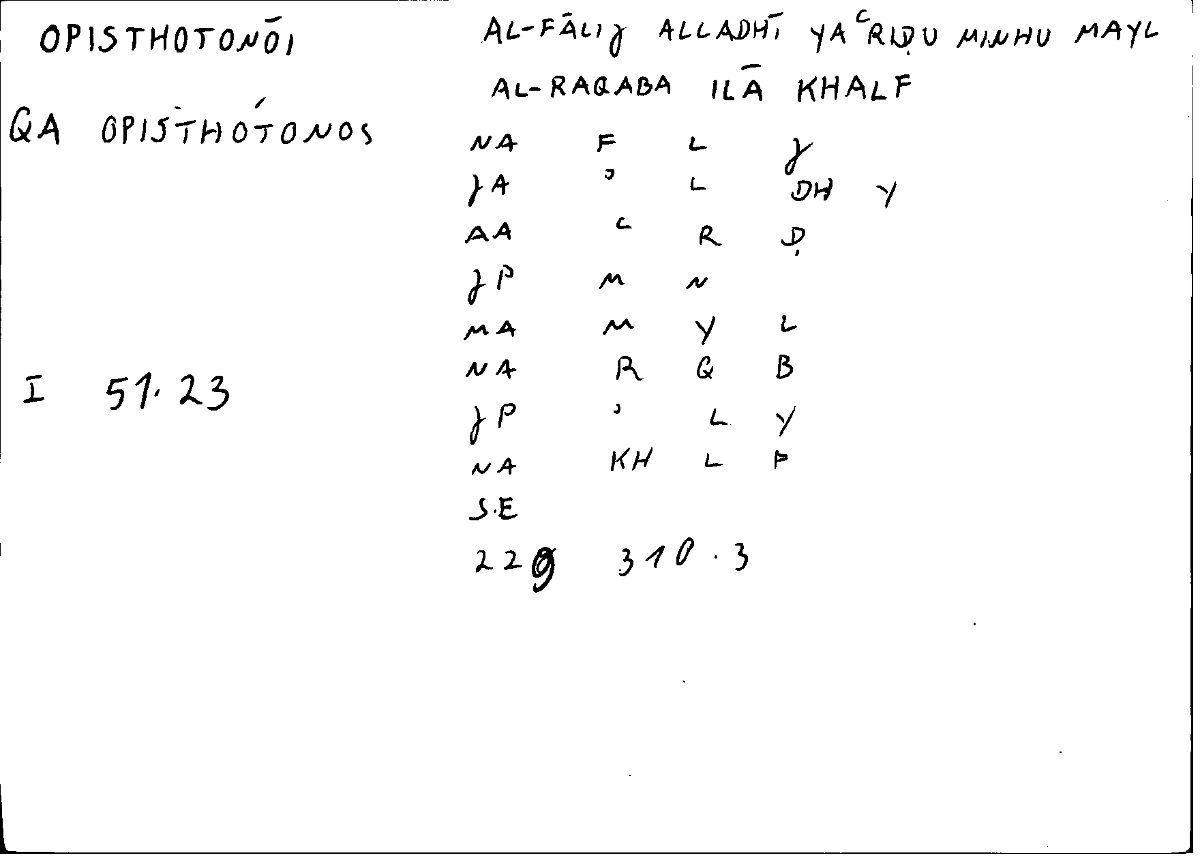 OPISTHOTONŌI
QA OPISTHÓTONOS
I 51.23
AL-FĀLIJ ALLADHĪ YAʿRIḌU MINHU MAYL
AL-RAQABA ILĀ KHALF
NA F L J
JA ʾ L DH Y
AA ʿ R Ḍ
JP M N
MA M Y L
NA R Q B
JP ʾ L Y
NA KH L F
S.E
229 310.3